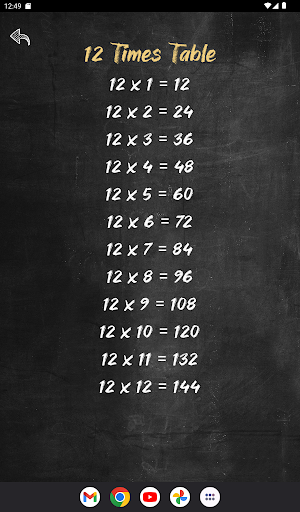 12:49
12 Times Table
12 x 1 = 12
12 x 2 = 24
12 x 3 = 36
12 x 4 = 48
12 x 5 = 60
12 x 6 = 72
12 x 7 = 84
12 x 8 = 96
12 x 9 = 108
12 x 10 = 120
12 x 11 = 132
12 x 12 = 144